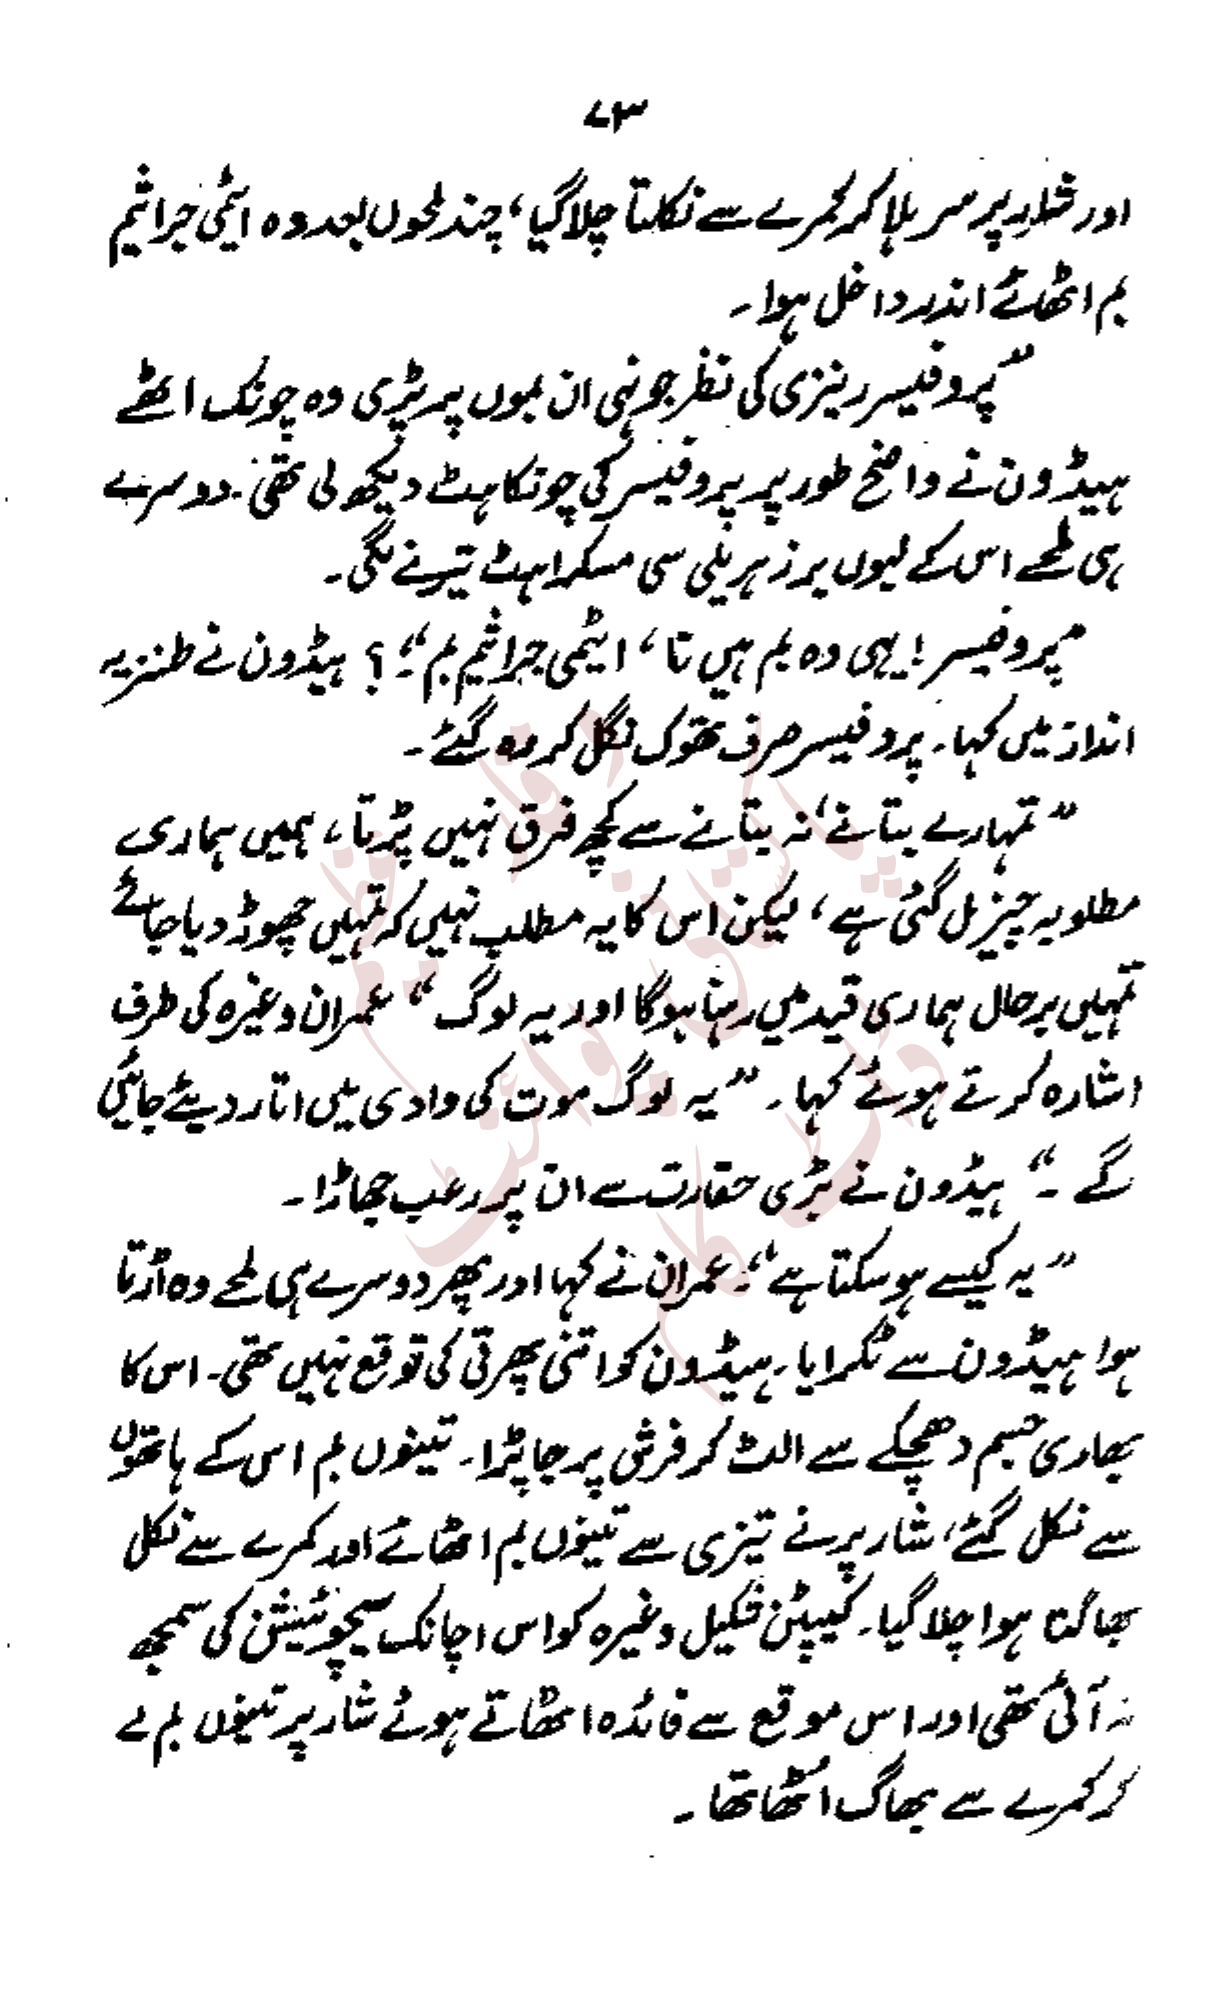 ۷۳
اور شارپر سر ہلا کر کمرے سے نکلتا چلا گیا، چند لمحوں بعد وہ ایٹمی جراثیم
بم اٹھائے اندر داخل ہوا۔
”پروفیسر رینزی کی نظر جونہی ان بموں پر پڑی وہ چونک اٹھے
ہیڈون نے واضح طور پر پروفیسر کی چونکاہٹ دیکھ لی تھی۔ دوسرے
ہی لمحے اس کے لبوں پر زہریلی سی مسکراہٹ تیرنے لگی۔
”پروفیسر! یہی وہ بم ہیں نا، ایٹمی جراثیم بم“؟ ہیڈون نے طنزیہ
انداز میں کہا۔ پروفیسر صرف تھوک نگل کر رہ گئے۔
”تمہارے بتانے، نہ بتانے سے کچھ فرق نہیں پڑتا، ہمیں ہماری
مطلوبہ چیز مل گئی ہے، لیکن اس کا یہ مطلب نہیں کہ تمہیں چھوڑ دیا جائے
تمہیں بہرحال ہماری قید میں رہنا ہوگا اور یہ لوگ“ عمران وغیرہ کی طرف
اشارہ کرتے ہوئے کہا۔ ”یہ لوگ موت کی وادی میں اتار دیئے جائیں
گے۔“ ہیڈون نے بڑی حقارت سے ان پر رعب جھاڑا۔
”یہ کیسے ہو سکتا ہے“۔ عمران نے کہا اور پھر دوسرے ہی لمحے وہ اڑتا
ہوا ہیڈون سے ٹکرایا۔ ہیڈون کو اتنی پھرتی کی توقع نہیں تھی۔ اس کا
بھاری جسم دھچکے سے الٹ کر فرش پر جا پڑا۔ تینوں بم اس کے ہاتھوں
سے نکل گئے، شارپر نے تیزی سے تینوں بم اٹھائے اور کمرے سے نکل
بھاگتا ہوا چلا گیا۔ کیپٹن شکیل وغیرہ کو اس اچانک سیچوئیشن کی سمجھ
نہ آئی تھی اور اس موقع سے فائدہ اٹھاتے ہوئے شارپر تینوں بم لے
کر کمرے سے بھاگ اُٹھا تھا۔
پاکستانی پوائنٹ
ڈاٹ کام